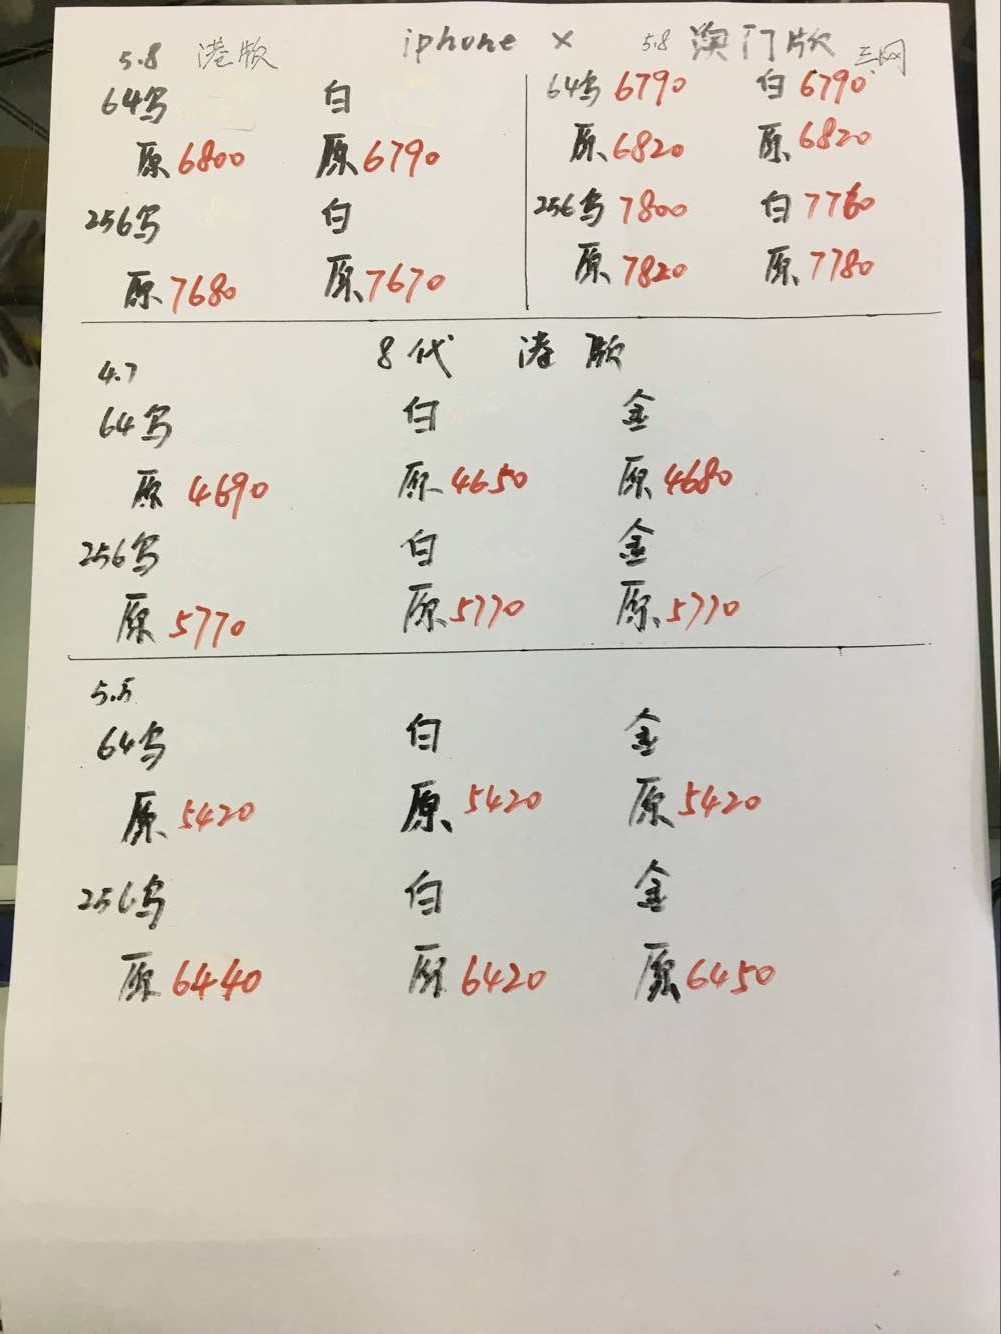 iphone X
5.8 港版
5.8 澳门版 三网
64乌 白
原 6800 原 6790
256乌 白
原 7680 原 7670
64乌 6790 白 6790
原 6820 原 6820
256乌 7800 白 7760
原 7820 原 7780
8代 港版
4.7
64乌 白 金
原 4690 原 4650 原 4680
256乌 白 金
原 5770 原 5770 原 5770
5.5
64乌 白 金
原 5420 原 5420 原 5420
256乌 白 金
原 6440 原 6420 原 6450